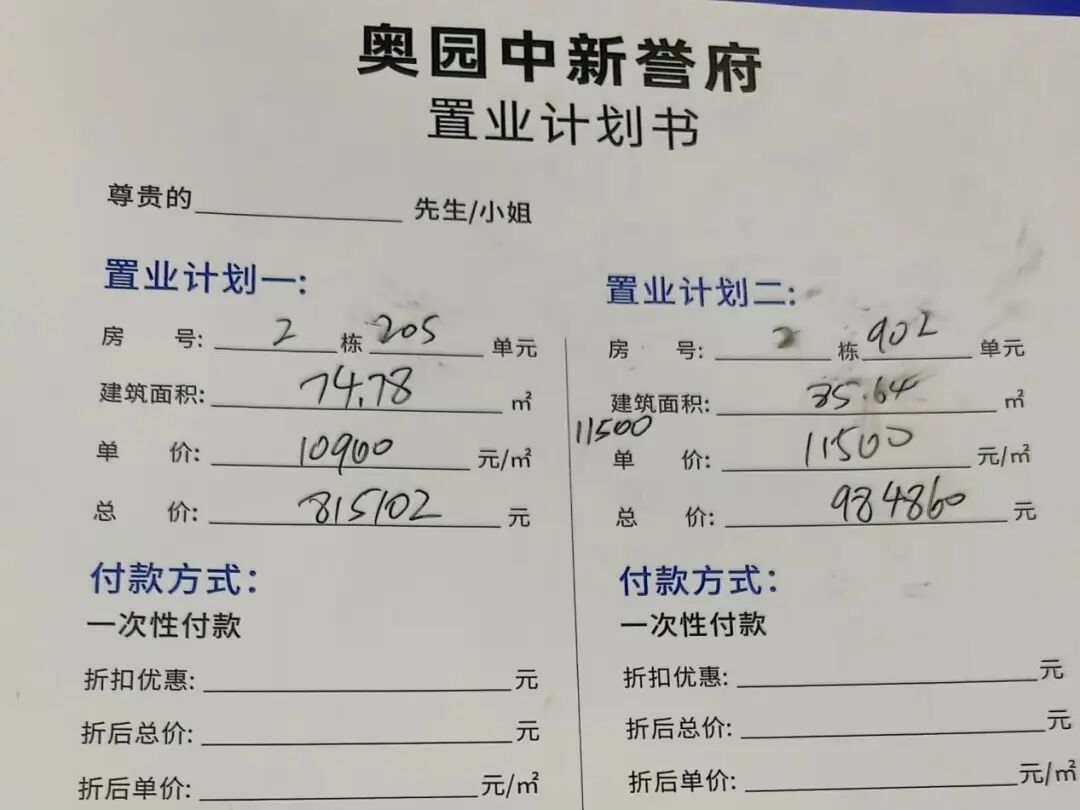 奥园中新誉府
置业计划书
尊贵的 先生/小姐
置业计划一:
房 号: 2 栋 205 单元
建筑面积: 74.78 ㎡
单 价: 10900 元/㎡
总 价: 815102 元
付款方式:
一次性付款
折扣优惠: 元
折后总价: 元
折后单价: 元/㎡
置业计划二:
房 号: 2 栋 902 单元
建筑面积: 85.64 ㎡
11500
单 价: 11500 元/㎡
总 价: 984860 元
付款方式:
一次性付款
折扣优惠: 元
折后总价: 元
折后单价: 元/㎡